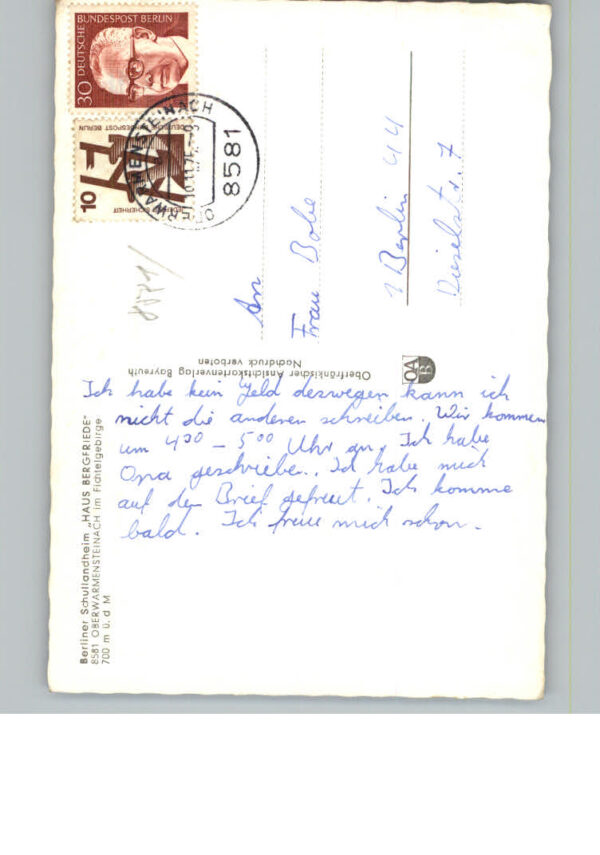 30 DEUTSCHE BUNDESPOST BERLIN
10 JEDERZEIT SICHERHEIT
DEUTSCHE BUNDESPOST BERLIN
OBERWARMENSTEINACH
8581
An
Frau Bobe
1 Berlin 44
Dieselstr. 7
OAB
Oberfränkischer Ansichtskartenverlag Bayreuth
Nachdruck verboten
Ich habe kein Geld deswegen kann ich
nicht die anderen schreiben. Wir kommen
um 4 30 – 5 00 Uhr an. Ich habe
Opa geschrieben. Ich habe mich
auf den Brief gefreut. Ich komme
bald. Ich freue mich schon.
Berliner Schullandheim „HAUS BERGFRIEDE"
8581 OBERWARMENSTEINACH im Fichtelgebirge
700 m ü. d M